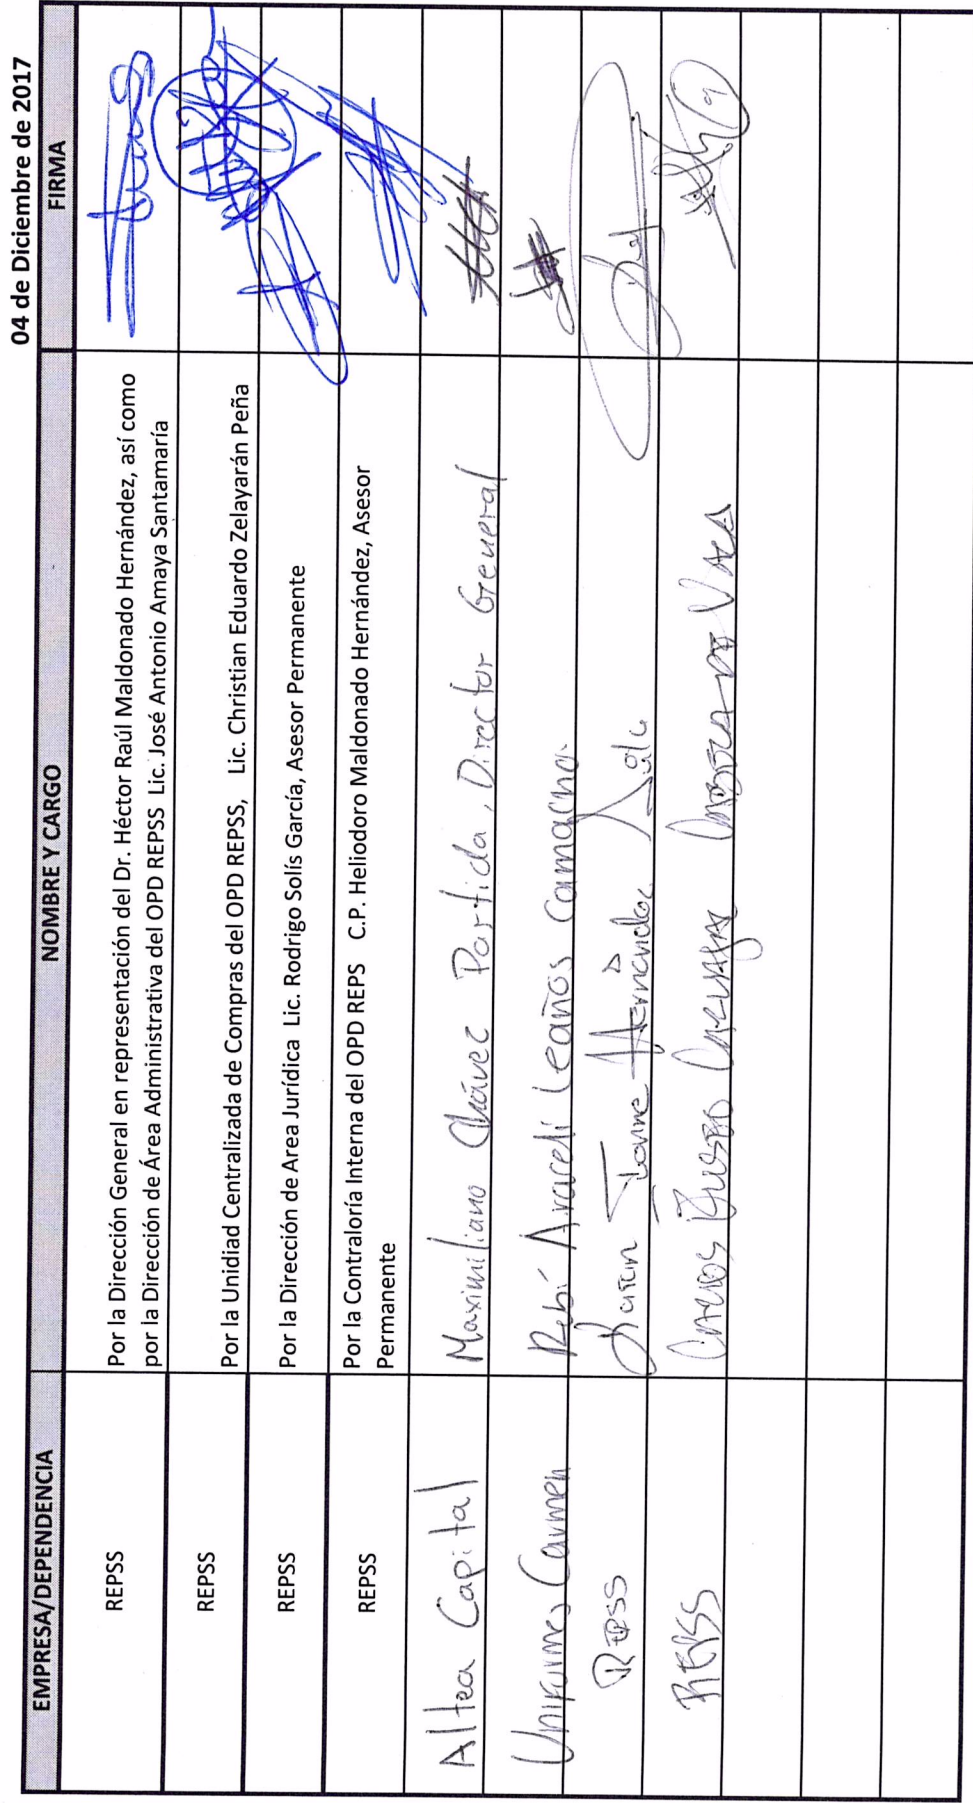 04 de Diciembre de 2017
EMPRESA/DEPENDENCIA NOMBRE Y CARGO FIRMA
REPSS
Por la Dirección General en representación del Dr. Héctor Raúl Maldonado Hernández, así como
por la Dirección de Área Administrativa del OPD REPSS Lic. José Antonio Amaya Santamaría
REPSS
Por la Unidiad Centralizada de Compras del OPD REPSS, Lic. Christian Eduardo Zelayarán Peña
REPSS
Por la Dirección de Area Jurídica Lic. Rodrigo Solís García, Asesor Permanente
REPSS
Por la Contraloría Interna del OPD REPS C.P. Heliodoro Maldonado Hernández, Asesor
Permanente
Altea Capital Maximiliano Chávez Partida, Director General
Uniformes Carmen Rubí Araceli Leaños Camacho
REPSS Karen Hernández
REPSS Carlos